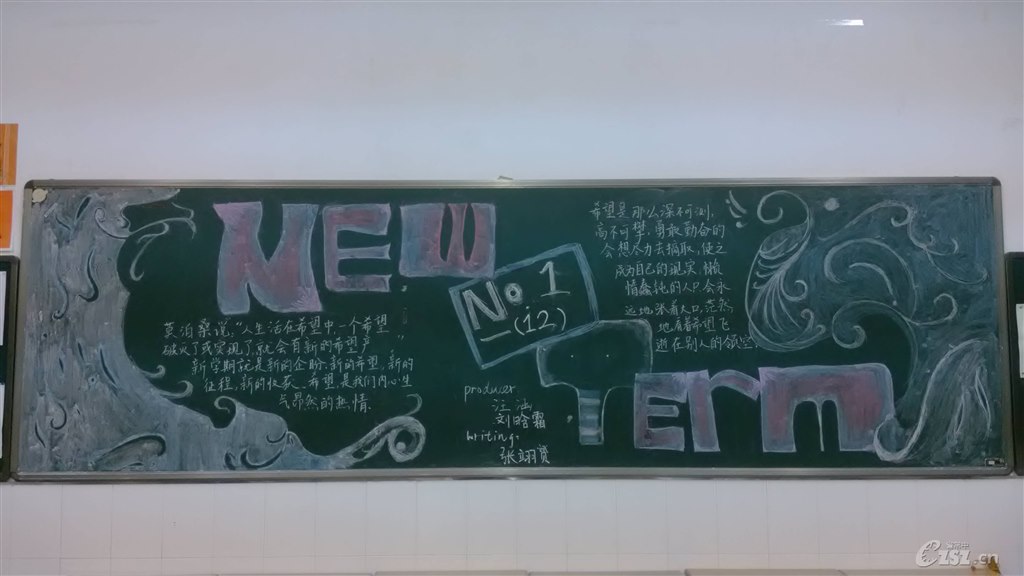 NEW
No 1
(12)
Term
莫泊桑说:"人生活在希望中.一个希望
破灭了或实现了,就会有新的希望产
新学期就是新的企盼.新的希望.新的
征程.新的收获.希望是我们内心生
气昂然的热情.
希望是那么深不可测,
高不可攀.勇敢勤奋的
会想尽力去摘取,使之
成为自己的现实.懒
惰蠢钝的人只会永
远地张着大口,茫然
地看着希望飞
逝在别人的领空.
producer.
汪涵
刘晗霜
writing.
张翊贤
.cn